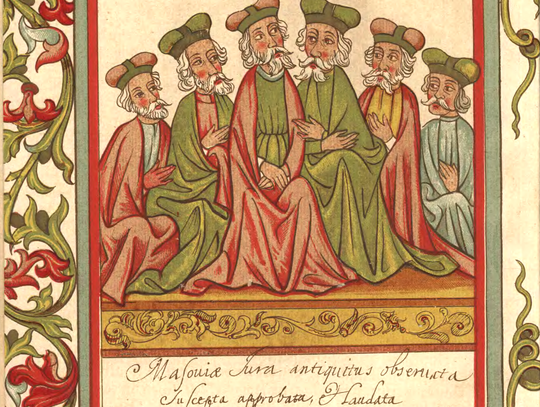 Masoviæ Iura antiquitus obseruata
Suscepta approbata, & laudata